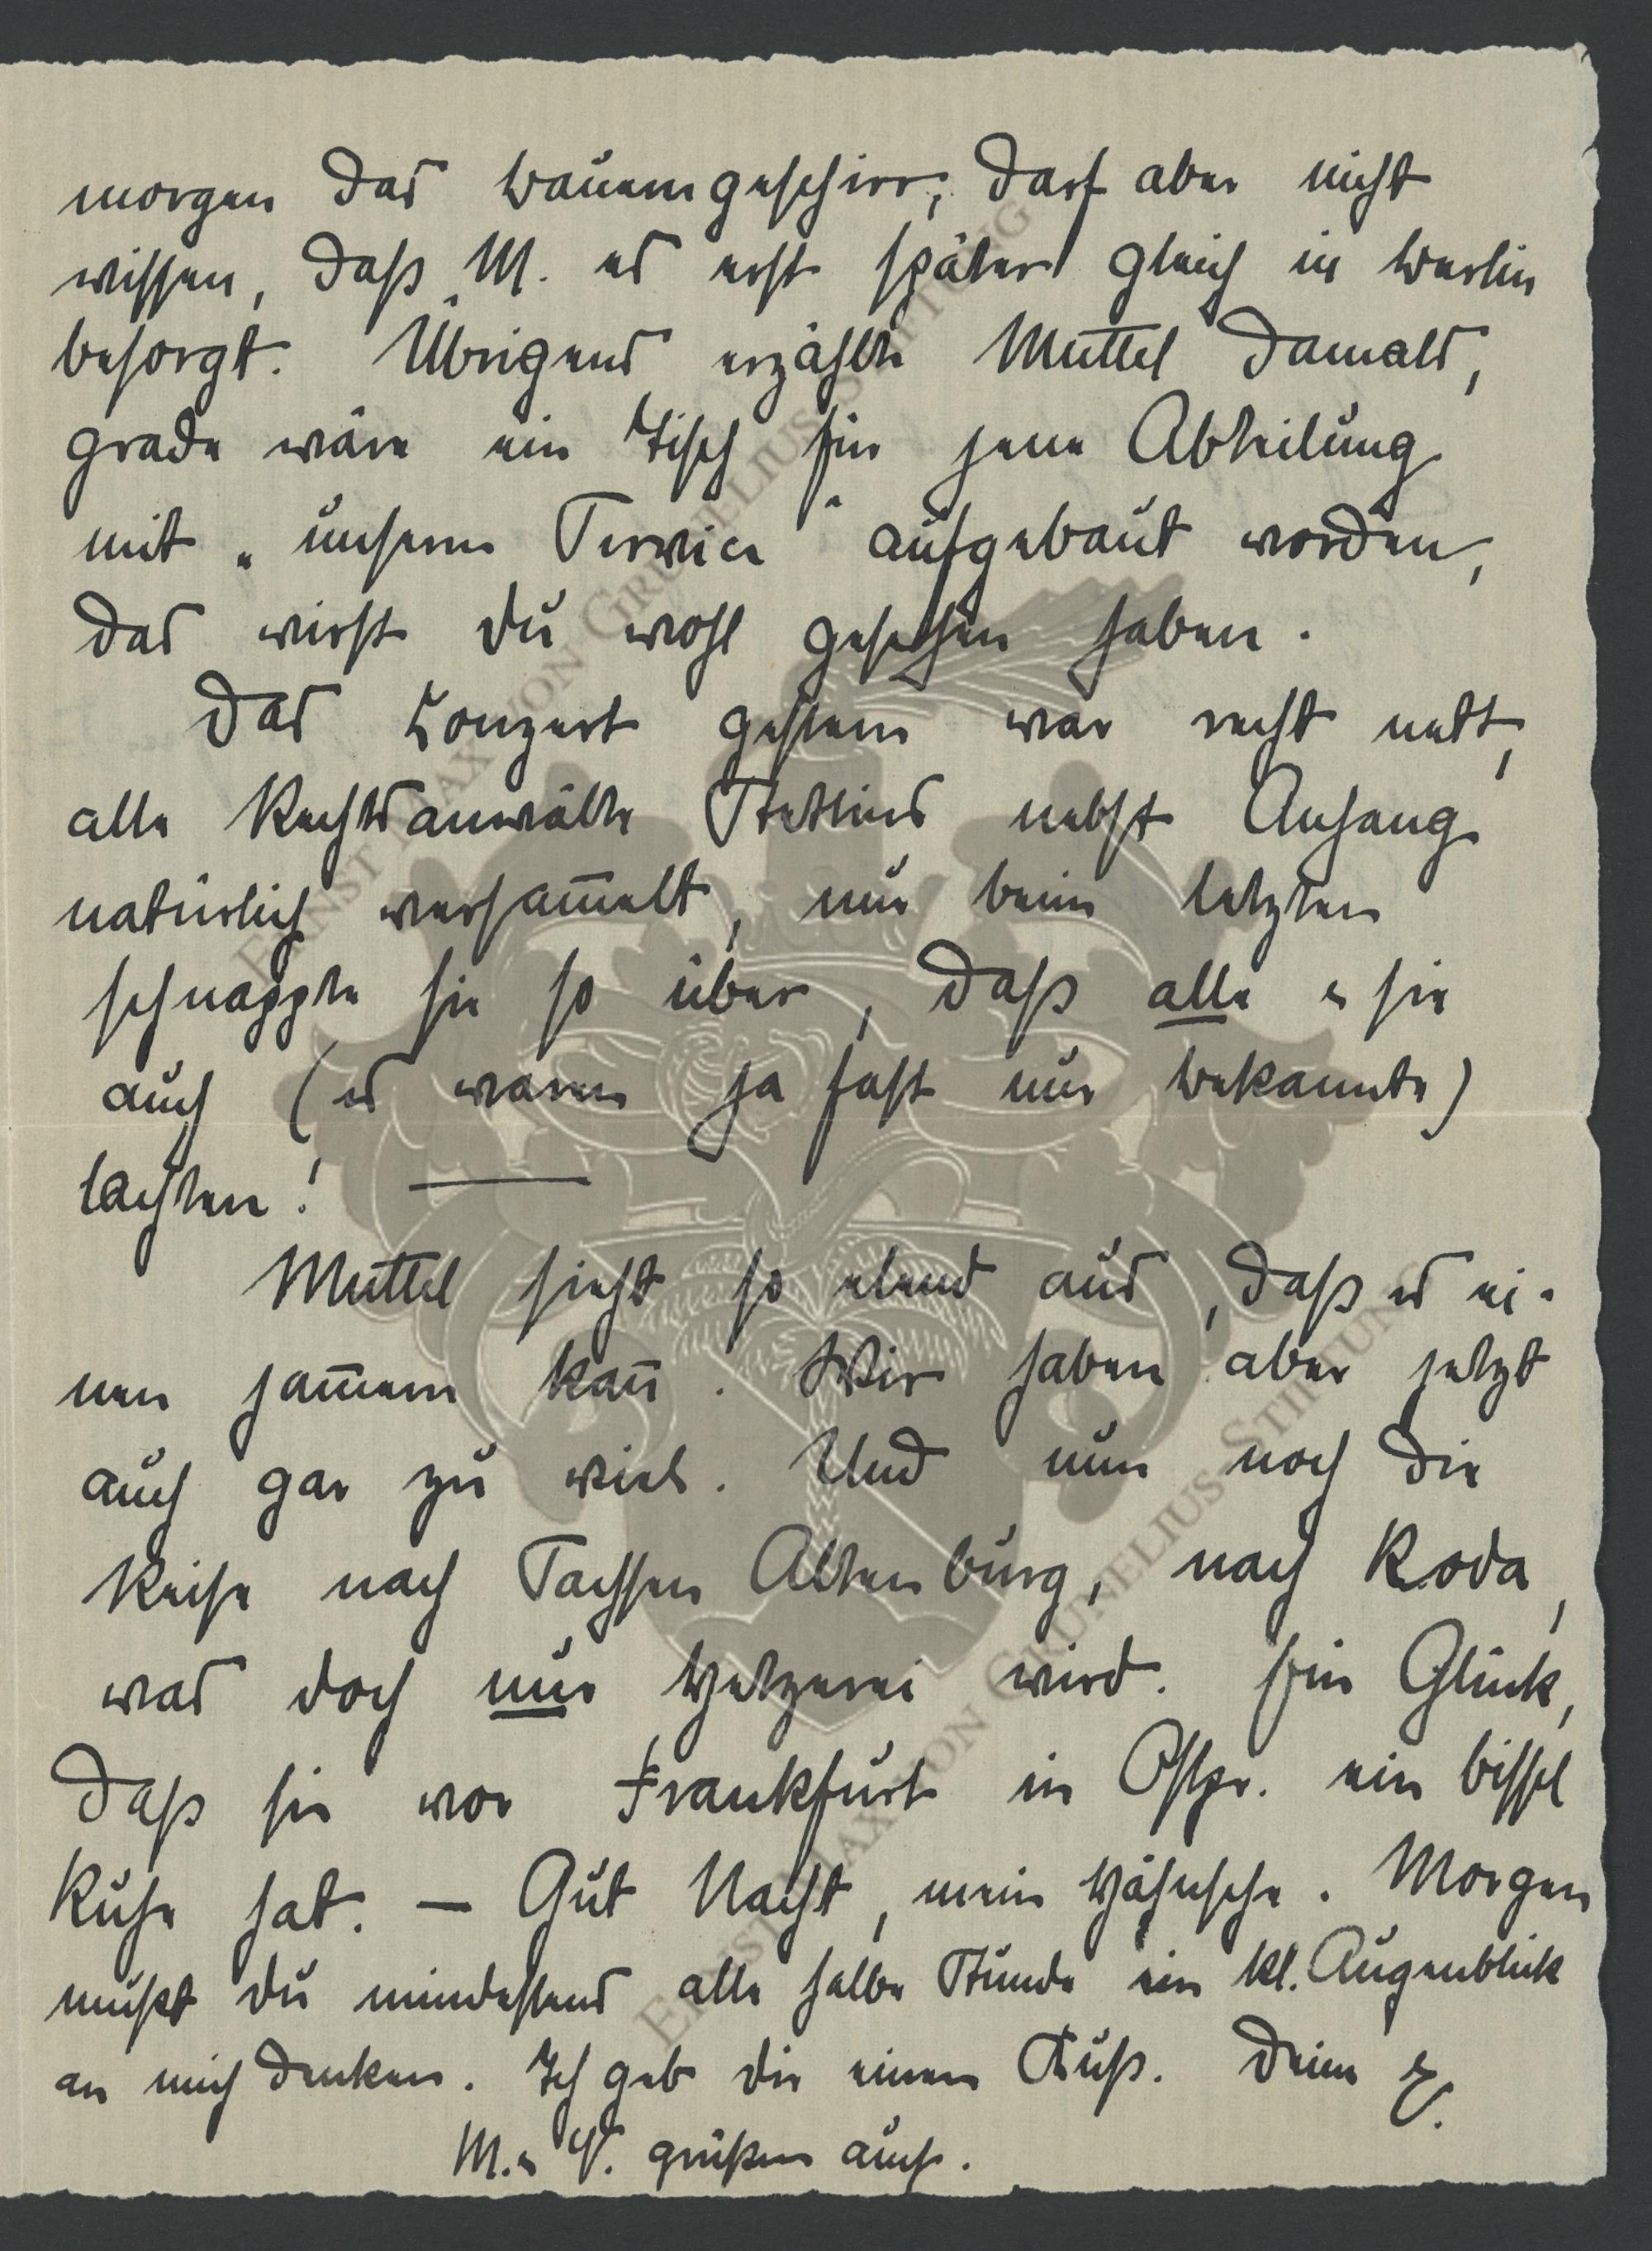 morgen das Bauerngeschirr, darf aber nicht
wissen, daß M. es erst später gleich in Berlin
besorgt. Übrigens erzählte Muttel damals,
grade wäre ein Tisch für jene Abteilung
mit „unserm Service“ aufgebaut worden,
das wirst du wohl gesehen haben.
Das Conzert gestern war recht nett,
alle Rechtsanwälte Stettins nebst Anhang
natürlich versam̅elt, nur beim letzten
schnappte sie so über, daß alle u sie
auch (es waren ja fast nur Bekannte)
lachten! ―
Muttel sieht so elend aus, daß es ei-
nen jam̅ern kan̅. Wir haben aber jetzt
auch gar zu viel. Und nun noch die
Reise nach Sachsen Altenburg, nach Roda,
was doch nur Hetzerei wird. Ein Glück,
daß sie vor Frankfurt in Ostpr. ein bissel
Ruhe hat. — Gut Nacht, mein Hähnsche. Morgen
mußt du mindestens alle halbe Stunde ein kl. Augenblick
an mich denken. Ich geb dir einen Kuß. Deine E.
M. u V. grüßen auch.
ERNST MAX VON GRUNELIUS-STIFTUNG
ERNST MAX VON GRUNELIUS-STIFTUNG